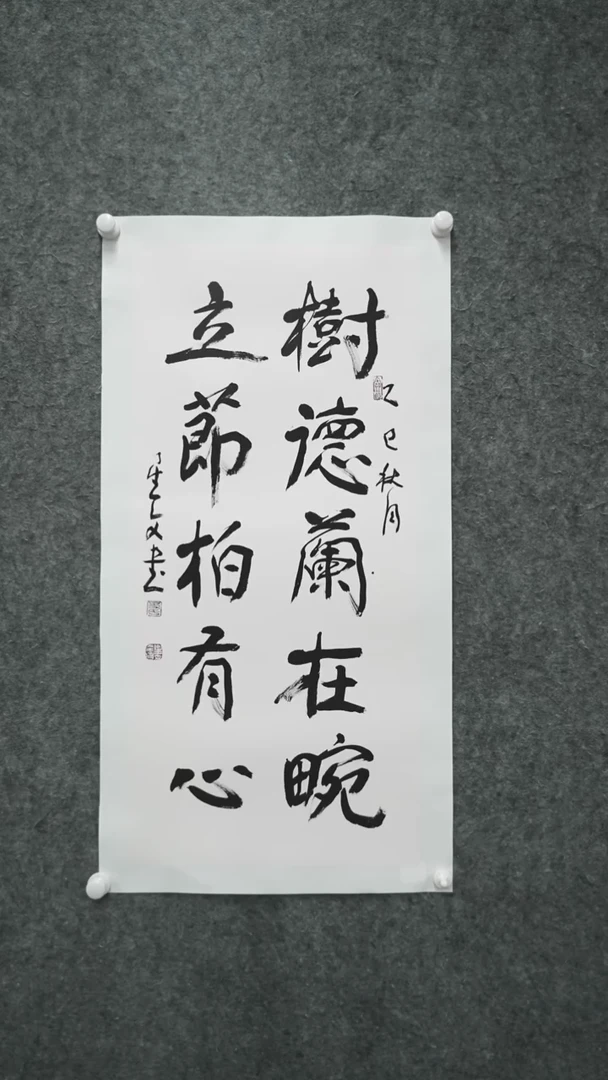 樹德蘭在畹
乙巳秋月
立節柏有心